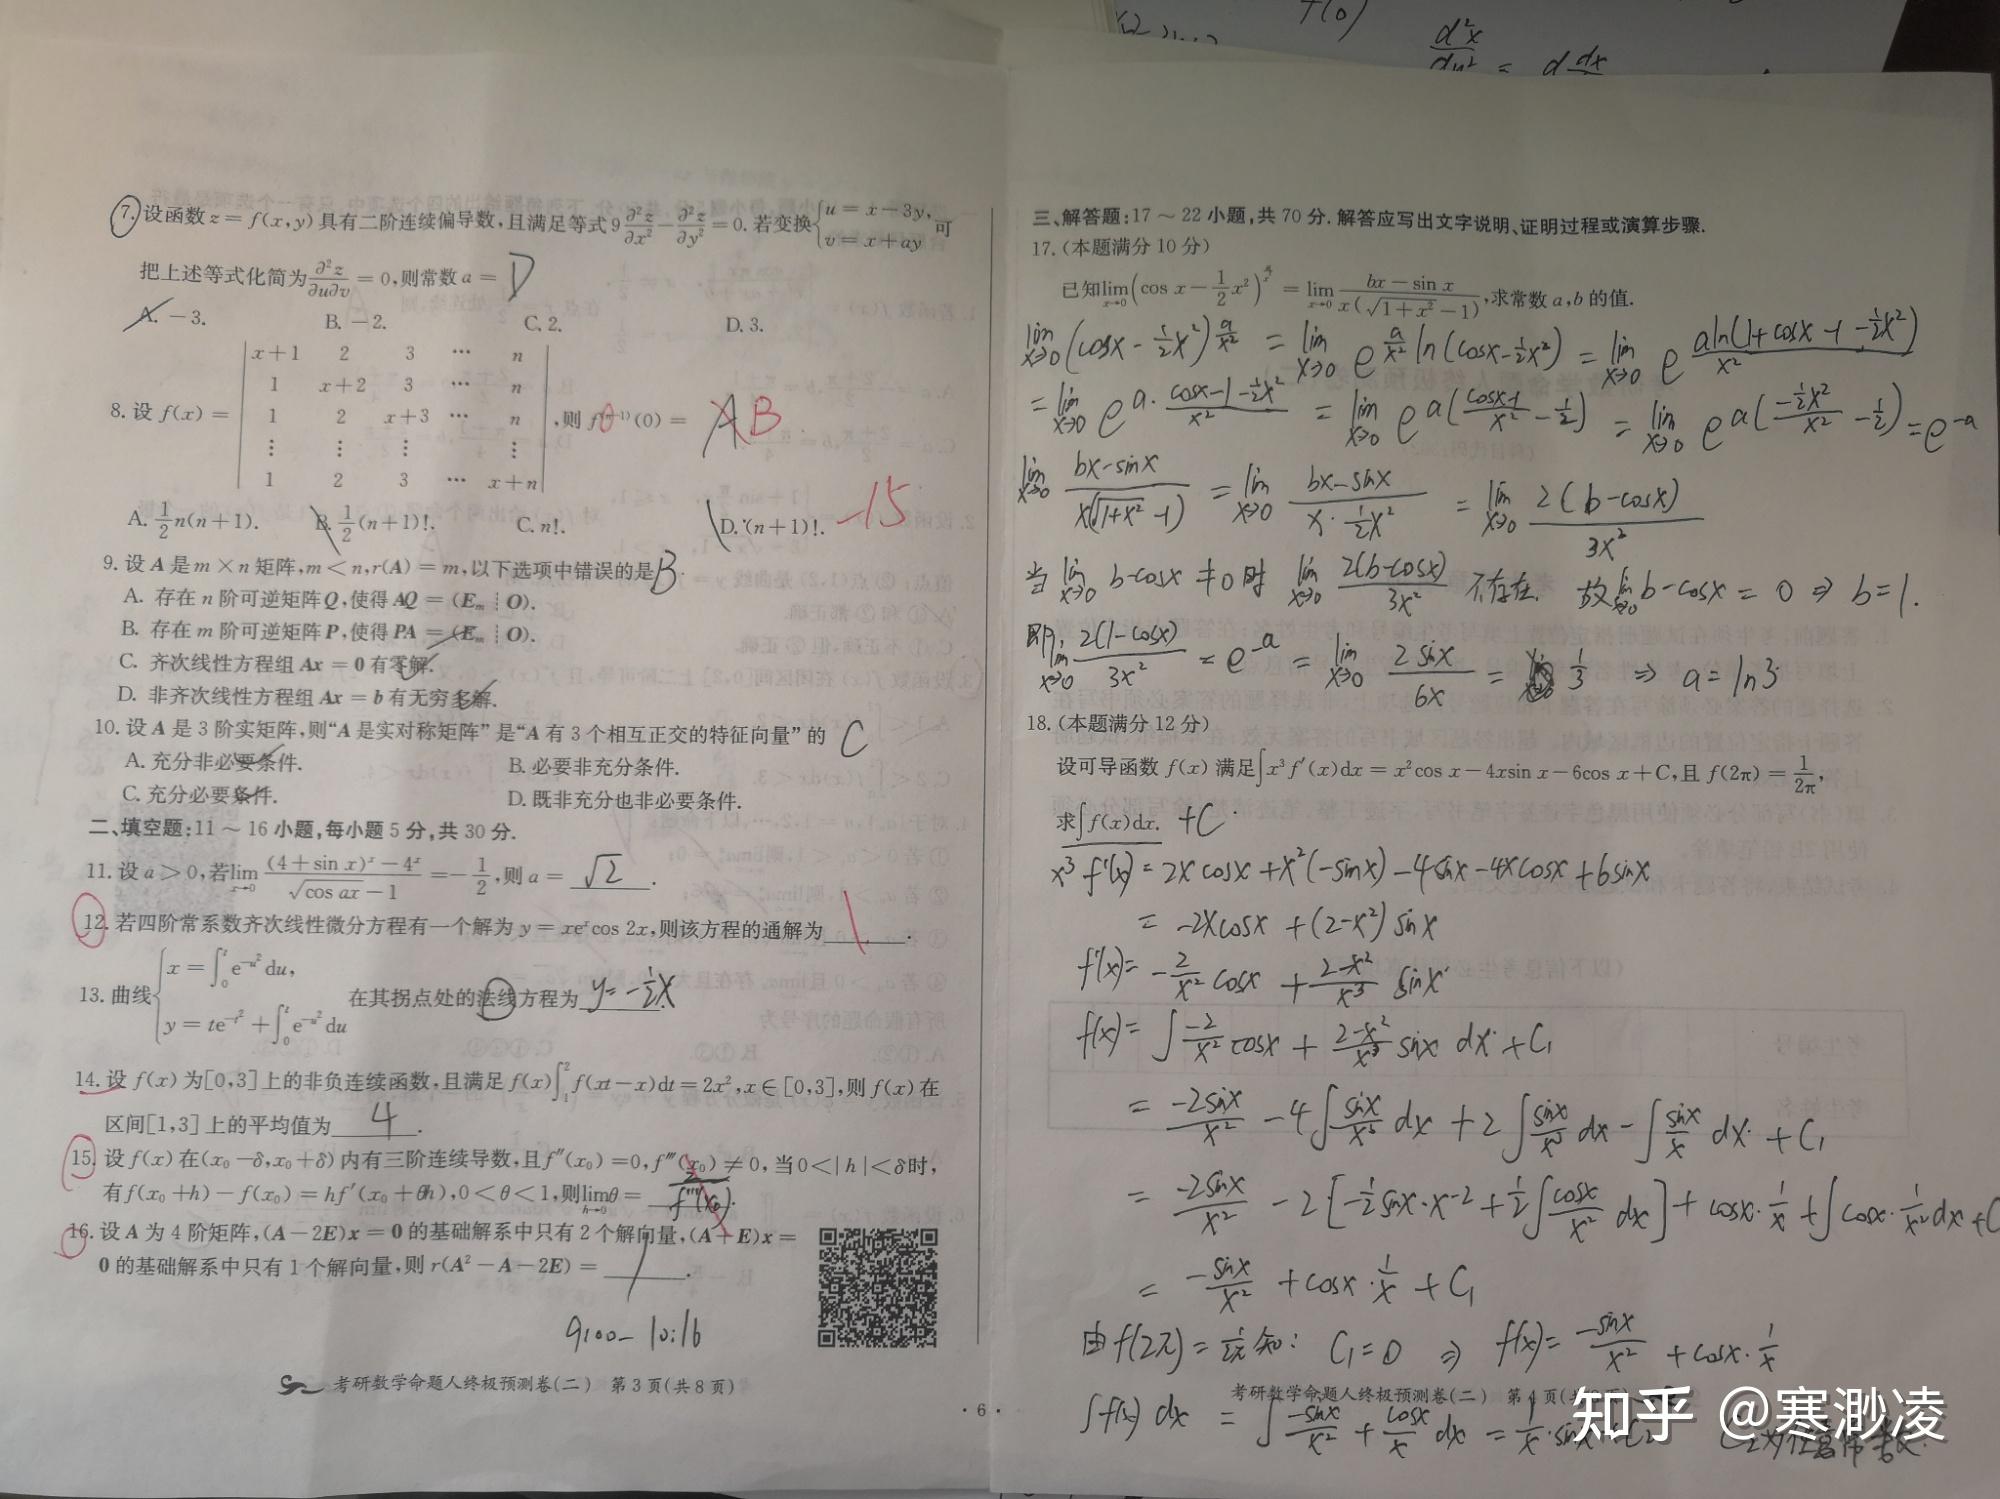 f(0)
d²x/du² = d dx
7. 设函数 z = f(x,y) 具有二阶连续偏导数,且满足等式 9 ∂²z/∂x² − ∂²z/∂y² = 0. 若变换 { u = x − 3y, v = x + ay 可
把上述等式化简为 ∂²z/∂u∂v = 0,则常数 a = D
A. −3. B. −2. C. 2. D. 3.
8. 设 f(x) = | x+1 2 3 ⋯ n |
| 1 x+2 3 ⋯ n |
| 1 2 x+3 ⋯ n | ,则 f⁽ⁿ⁻¹⁾(0) = A B
| ⋮ ⋮ ⋮ ⋮ |
| 1 2 3 ⋯ x+n |
A. 1/2 n(n+1). B. 1/2 (n+1)!. C. n!. D. (n+1)!. −15
9. 设 A 是 m × n 矩阵, m < n, r(A) = m, 以下选项中错误的是 B
A. 存在 n 阶可逆矩阵 Q, 使得 AQ = (Eₘ ⋮ O).
B. 存在 m 阶可逆矩阵 P, 使得 PA = (Eₘ ⋮ O).
C. 齐次线性方程组 Ax = 0 有零解.
D. 非齐次线性方程组 Ax = b 有无穷多解.
10. 设 A 是 3 阶实矩阵, 则“A 是实对称矩阵”是“A 有 3 个相互正交的特征向量”的 C
A. 充分非必要条件. B. 必要非充分条件.
C. 充分必要条件. D. 既非充分也非必要条件.
二、填空题: 11 ～ 16 小题, 每小题 5 分, 共 30 分.
11. 设 a > 0, 若 lim x→0 ((4 + sin x)ˣ − 4ˣ)/(√(cos ax) − 1) = −1/2, 则 a = √2 .
12. 若四阶常系数齐次线性微分方程有一个解为 y = xeˣcos 2x, 则该方程的通解为 ______.
13. 曲线 { x = ∫₀ᵗ e^(−u²) du, y = te^(−t²) + ∫₀ᵗ e^(−u²) du 在其拐点处的法线方程为 y = −1/2 x .
14. 设 f(x) 为[0,3]上的非负连续函数, 且满足 f(x)∫₁² f(xt − x)dt = 2x², x ∈ [0,3], 则 f(x) 在
区间[1,3]上的平均值为 4 .
15. 设 f(x) 在(x₀ − δ, x₀ + δ) 内有三阶连续导数, 且 f″(x₀) = 0, f‴(x₀) ≠ 0, 当 0 < | h | < δ 时,
有 f(x₀ + h) − f(x₀) = hf′(x₀ + θh), 0 < θ < 1, 则 lim h→0 θ = 2/f‴(x₀) .
16. 设 A 为 4 阶矩阵, (A − 2E)x = 0 的基础解系中只有 2 个解向量, (A + E)x =
0 的基础解系中只有 1 个解向量, 则 r(A² − A − 2E) = ______.
9:00 — 10:16
考研数学命题人终极预测卷(二) 第 3 页(共 8 页)
· 6 ·
三、解答题: 17 ～ 22 小题, 共 70 分. 解答应写出文字说明、证明过程或演算步骤.
17. (本题满分 10 分)
已知 lim x→0 (cos x − 1/2 x²)^(a/x²) = lim x→0 (bx − sin x)/(x(√(1 + x²) − 1)), 求常数 a, b 的值.
lim x→0 (cosx − 1/2 x²)^(a/x²) = lim x→0 e^(a/x² ln(cosx − 1/2 x²)) = lim x→0 e^(aln(1+cosx−1−1/2 x²)/x²)
= lim x→0 e^(a·(cosx−1−1/2 x²)/x²) = lim x→0 e^(a((cosx−1)/x² − 1/2)) = lim x→0 e^(a(−1/2 x²/x² − 1/2)) = e^(−a)
lim x→0 (bx−sinx)/(x(√(1+x²)−1)) = lim x→0 (bx−sinx)/(x·1/2 x²) = lim x→0 2(b−cosx)/3x²
当 lim x→0 b−cosx ≠ 0 时 lim x→0 2(b−cosx)/3x² 不存在. 故 lim x→0 b−cosx = 0 ⇒ b = 1.
即 lim x→0 2(1−cosx)/3x² = e^(−a) = lim x→0 2sinx/6x = 1/3 ⇒ a = ln3
18. (本题满分 12 分)
设可导函数 f(x) 满足 ∫x³f′(x)dx = x²cos x − 4xsin x − 6cos x + C, 且 f(2π) = 1/2π,
求∫f(x)dx. +C
x³f′(x) = 2xcosx + x²(−sinx) − 4sinx − 4xcosx + 6sinx
= −2xcosx + (2−x²)sinx
f′(x) = −2/x² cosx + (2−x²)/x³ sinx
f(x) = ∫ −2/x² cosx + (2−x²)/x³ sinx dx + C₁
= −2sinx/x² − 4∫ sinx/x³ dx + 2∫ sinx/x³ dx − ∫ sinx/x dx + C₁
= −2sinx/x² − 2[−1/2 sinx·x⁻² + 1/2∫ cosx/x² dx] + cosx·1/x + ∫cosx·1/x² dx + C
= −sinx/x² + cosx·1/x + C₁
由 f(2π) = 1/2π 知: C₁ = 0 ⇒ f(x) = −sinx/x² + cosx·1/x
考研数学命题人终极预测卷(二) 第 4 页(共8页)
∫f(x) dx = ∫ −sinx/x² + cosx/x dx = 1/x·sinx + C₂ C₂为任意常数.
知乎 @寒渺凌